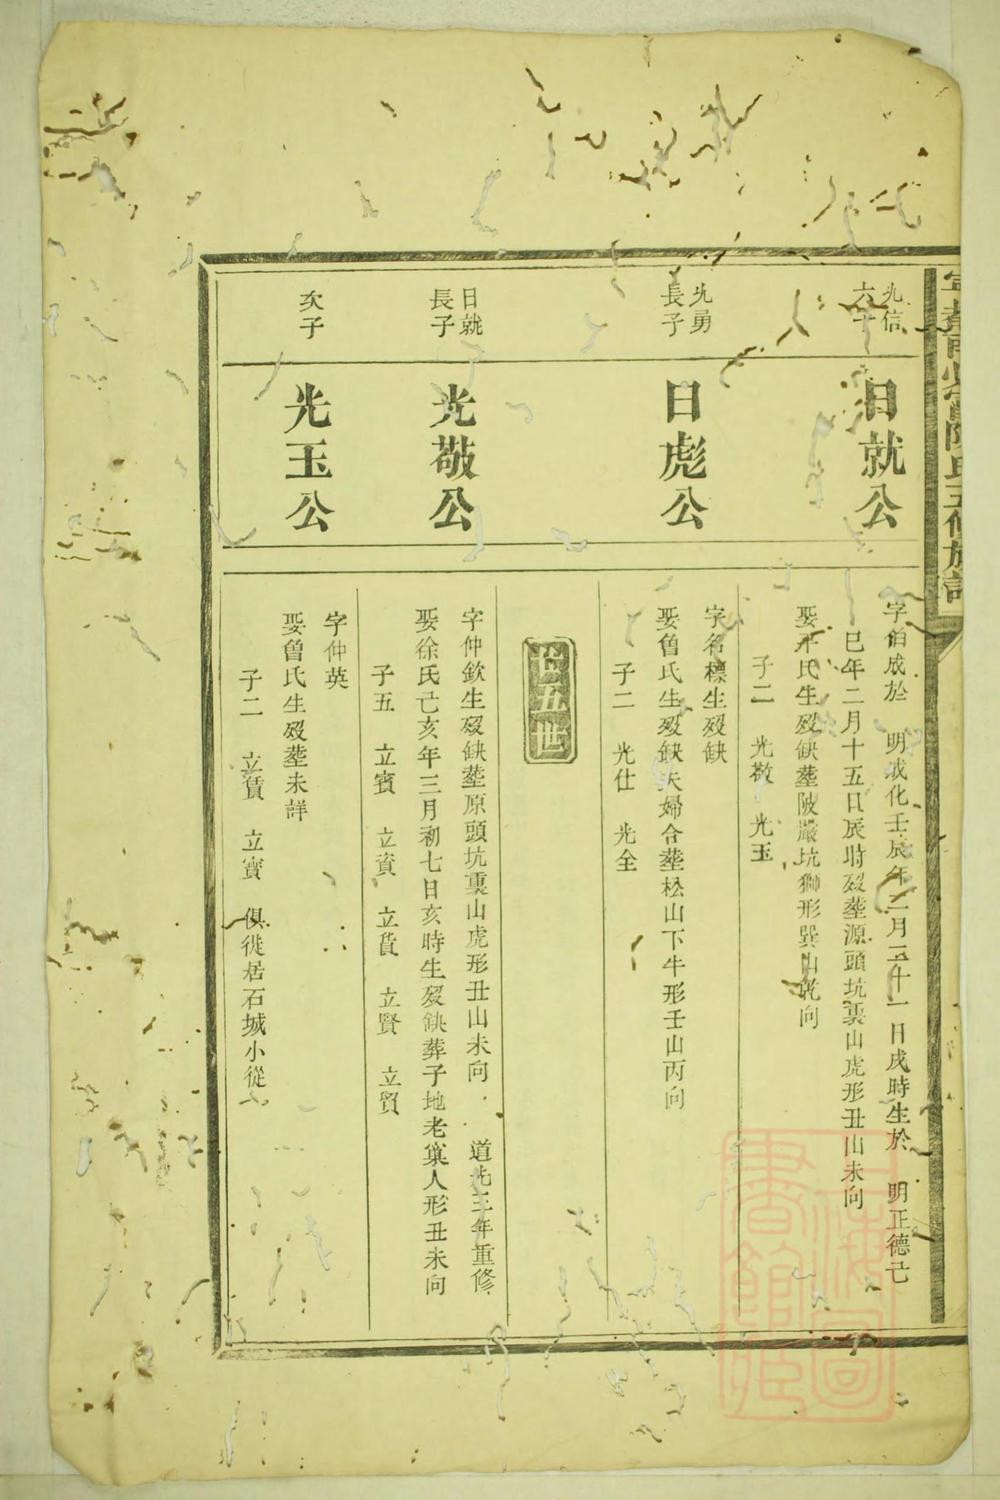 光信
日就公
字伯成於 明成化壬辰年二月二十一日戌時生於 明正德己
巳年二月十五日辰時歿塟源頭坑裏山虎形丑山未向
娶 氏生歿缺塟陂嚴坑獅形巽山乾向
子二 光敬 光玉
光勇
長子
日彪公
字名標生歿缺
娶曾氏生歿缺夫婦合塟松山下牛形壬山丙向
子二 光仕 光全
廿五世
日就
長子
光敬公
字仲欽生歿缺塟原頭坑裏山虎形丑山未向 道光三年重修
娶徐氏己亥年三月初七日亥時生歿缺葬子地老窠人形丑未向
子五 立賓 立資 立貨 立賢 立貿
次子
光玉公
字仲英
娶曾氏生歿塟未詳
子二 立賃 立寶 俱徙居石城小從